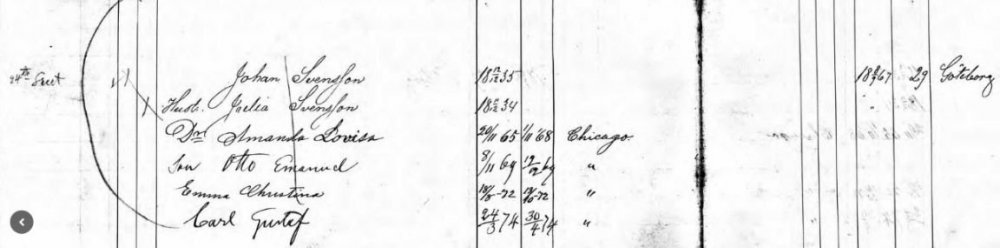 24th Street Johan Svensson 18 35 18 67 29 Göteborg
Hust. Julia Svenson 18 34
Dr Amanda Lovisa 20/11 65 1/11 '68 Chicago
Son Otto Emanuel 8/11 69 69 "
Emma Christina -72 -72 "
Carl Gustaf 24/3 74 30/4 74 "